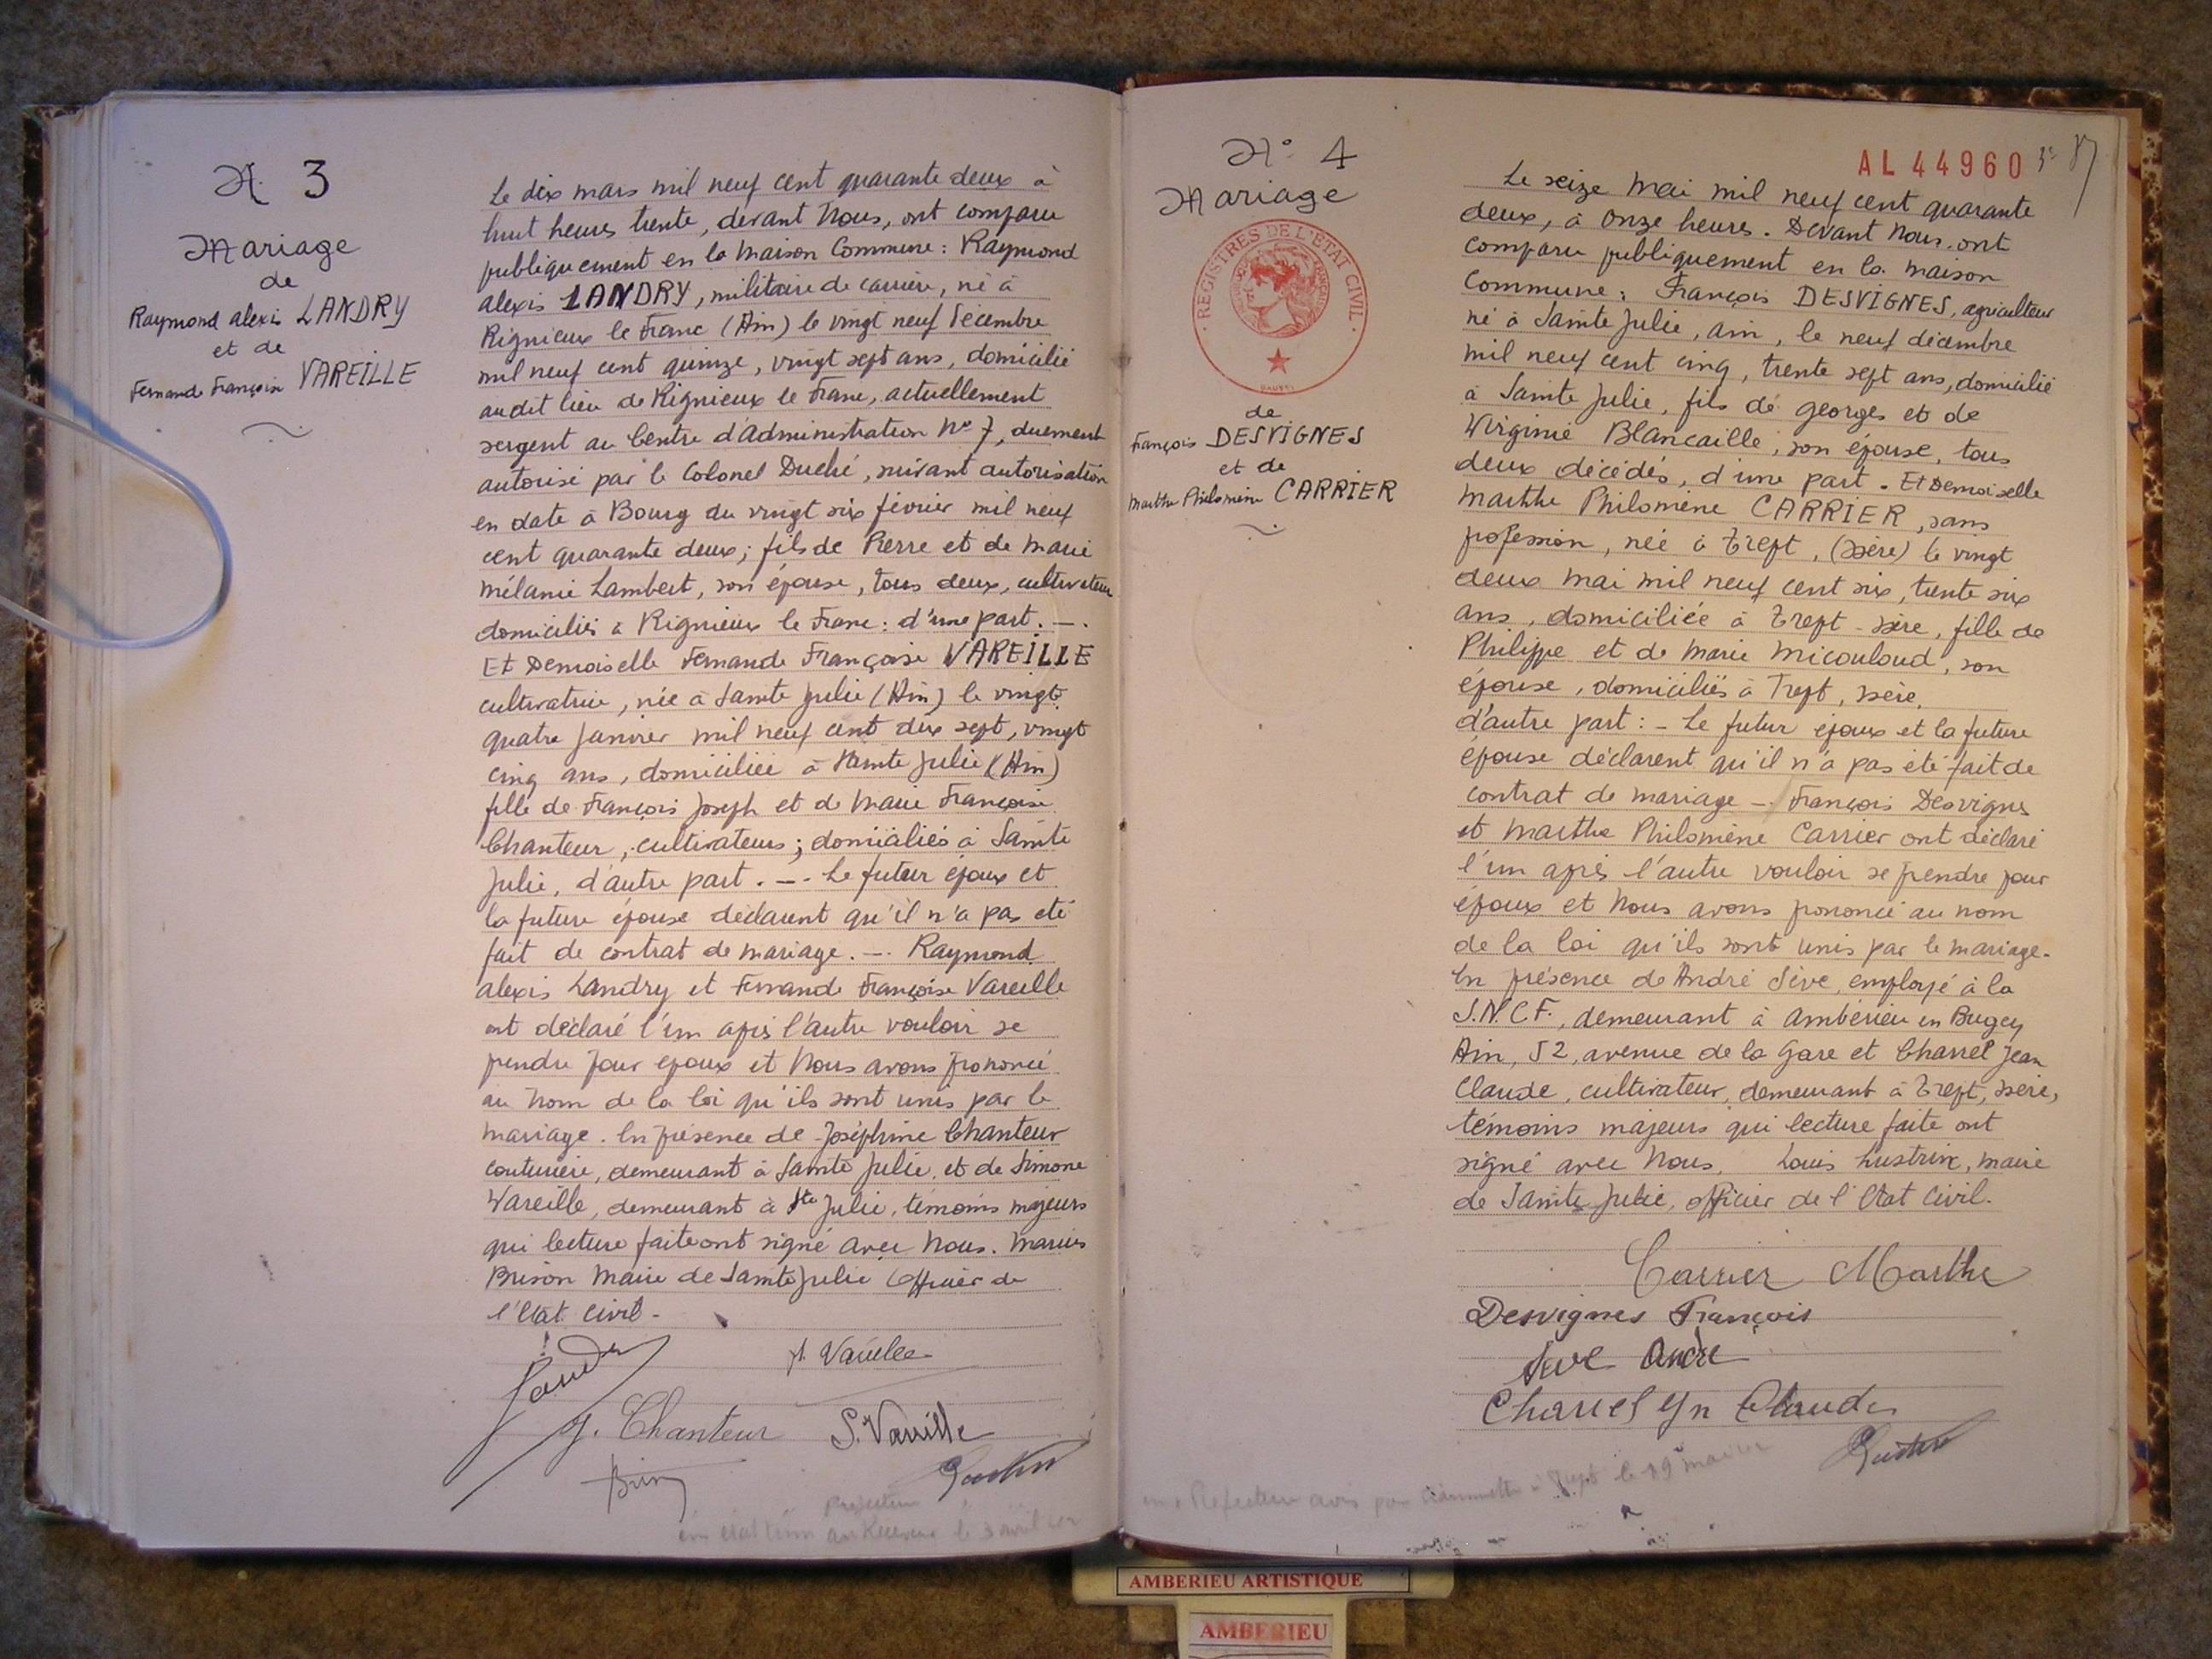 N. 3
Mariage
de
Raymond alexis LANDRY
et de
Fernande Françoise VAREILLE
Le dix mars mil neuf cent quarante deux à
huit heures trente, devant Nous, ont comparu
publiquement en la maison Commune : Raymond
alexis LANDRY, militaire de carrière, né à
Rignieux le Franc (Ain) le vingt neuf décembre
mil neuf cent quinze, vingt sept ans, domicilié
audit lieu de Rignieux le Franc, actuellement
sergent au Centre d'Administration N° 7, duement
autorisé par le Colonel Duché, suivant autorisation
en date à Bourg du vingt six février mil neuf
cent quarante deux ; fils de Pierre et de Marie
Mélanie Lambert, son épouse, tous deux, cultivateurs
domiciliés à Rignieux le Franc : d'une part. —.
Et Demoiselle Fernande Françoise VAREILLE
cultivatrice, née à Sainte Julie (Ain) le vingt
quatre janvier mil neuf cent dix sept, vingt
cinq ans, domiciliée à Sainte Julie (Ain)
fille de François Joseph et de Marie Françoise
Chanteur, cultivateurs ; domiciliés à Sainte
Julie, d'autre part. —. Le futur époux et
la future épouse déclarent qu'il n'a pas été
fait de contrat de mariage. —. Raymond
alexis Landry et Fernande Françoise Vareille
ont déclaré l'un après l'autre vouloir se
prendre pour époux et Nous avons prononcé
au nom de la loi qu'ils sont unis par le
mariage. En présence de Joséphine Chanteur
couturière, demeurant à Sainte Julie, et de Simone
Vareille, demeurant à Ste Julie, témoins majeurs
qui lecture faite ont signé avec Nous. Marius
Brison Maire de Sainte Julie Officier de
l'Etat Civil -
Landry
f. Vareille
J. Chanteur
S. Vareille
au Receveur le 3 avril 42
N° 4
Mariage
REGISTRES DE L'ETAT CIVIL
de
François DESVIGNES
et de
Marthe Philomène CARRIER
AL 44960
87
Le seize Mai mil neuf cent quarante
deux, à onze heures. Devant Nous ont
comparu publiquement en la maison
Commune : François DESVIGNES, agriculteur
né à Sainte Julie, ain, le neuf décembre
mil neuf cent cinq, trente sept ans, domicilié
à Sainte Julie, fils de Georges et de
Virginie Blancaille, son épouse, tous
deux décédés, d'une part. Et Demoiselle
Marthe Philomène CARRIER, sans
profession, née à Trept, (Isère) le vingt
deux Mai mil neuf cent six, trente six
ans, domiciliée à Trept - Isère, fille de
Philippe et de Marie Micouloud, son
épouse, domiciliés à Trept, Isère,
d'autre part : - Le futur époux et la future
épouse déclarent qu'il n'a pas été fait de
contrat de mariage -. François Desvignes
et Marthe Philomène Carrier ont déclaré
l'un après l'autre vouloir se prendre pour
époux et Nous avons prononcé au nom
de la loi qu'ils sont unis par le mariage.
En présence de André Sève, employé à la
S.N.C.F., demeurant à Ambérieu en Bugey
Ain, 52, avenue de la Gare et Charrel Jean
Claude, cultivateur, demeurant à Trept, Isère,
témoins majeurs qui lecture faite ont
signé avec Nous, Louis Lustrix, maire
de Sainte Julie, officier de l'Etat Civil.
Carrier Marthe
Desvignes François
Sève André
Charrel Jn Claude
AMBERIEU ARTISTIQUE
AMBERIEU